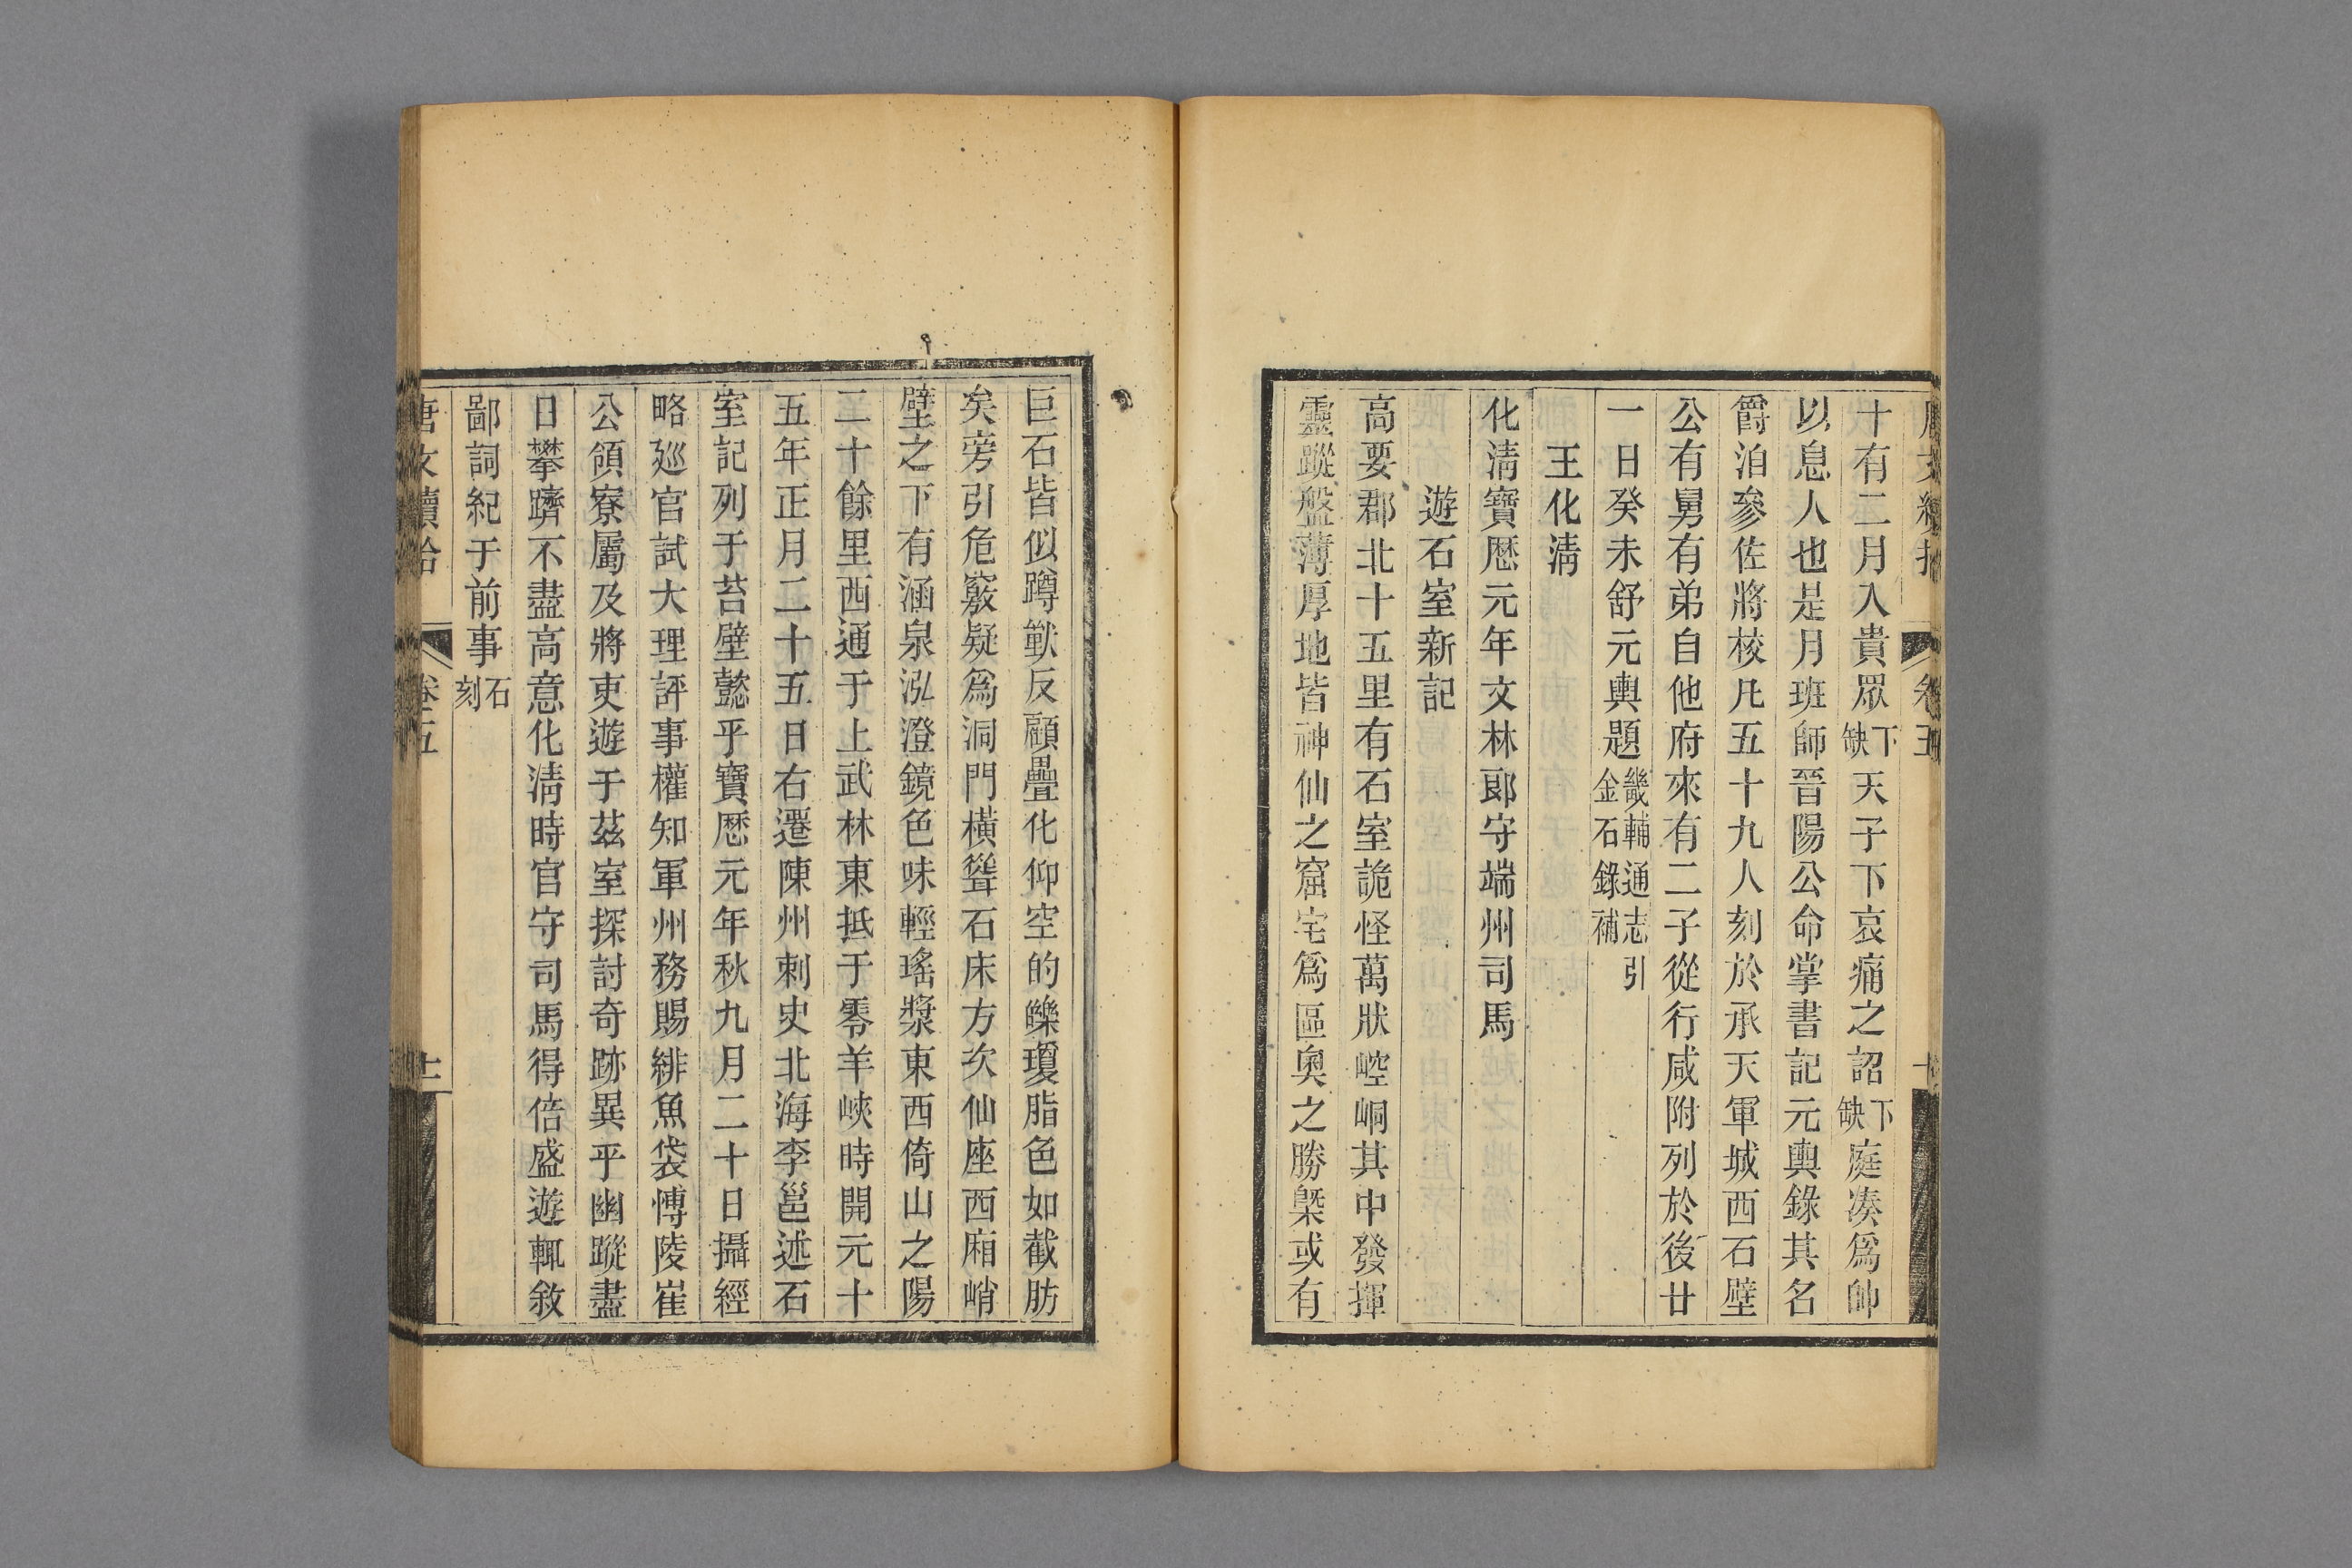 十有二月入貴眾下缺天子下哀痛之詔下缺庭湊爲帥
以息人也是月班師晉陽公命掌書記元輿錄其名
爵洎參佐將校凡五十九人刻於承天軍城西石壁
公有舅有弟自他府來有二子從行咸附列於後廿
一日癸未舒元輿題畿輔通志引金石錄補
王化淸
化淸寶厯元年文林郎守端州司馬
遊石室新記
高要郡北十五里有石室詭怪萬狀崆峒其中發揮
靈蹤盤薄厚地皆神仙之窟宅爲區奧之勝槩或有
巨石皆似蹲獸反顧疊化仰空的皪瓊脂色如截肪
矣旁引危竅疑爲洞門橫聳石床方次仙座西廂峭
壁之下有涵泉泓澄鏡色味輕瑤漿東西倚山之陽
二十餘里西通于上武林東抵于零羊峽時開元十
五年正月二十五日右遷陳州刺史北海李邕述石
室記列于苔壁懿乎寶厯元年秋九月二十日攝經
略廵官試大理評事權知軍州務賜緋魚袋博陵崔
公領寮屬及將吏遊于茲室探討奇跡異乎幽蹤盡
日攀躋不盡高意化淸時官守司馬得倍盛遊輒敘
鄙詞紀于前事石刻
唐文續拾 卷五 十一